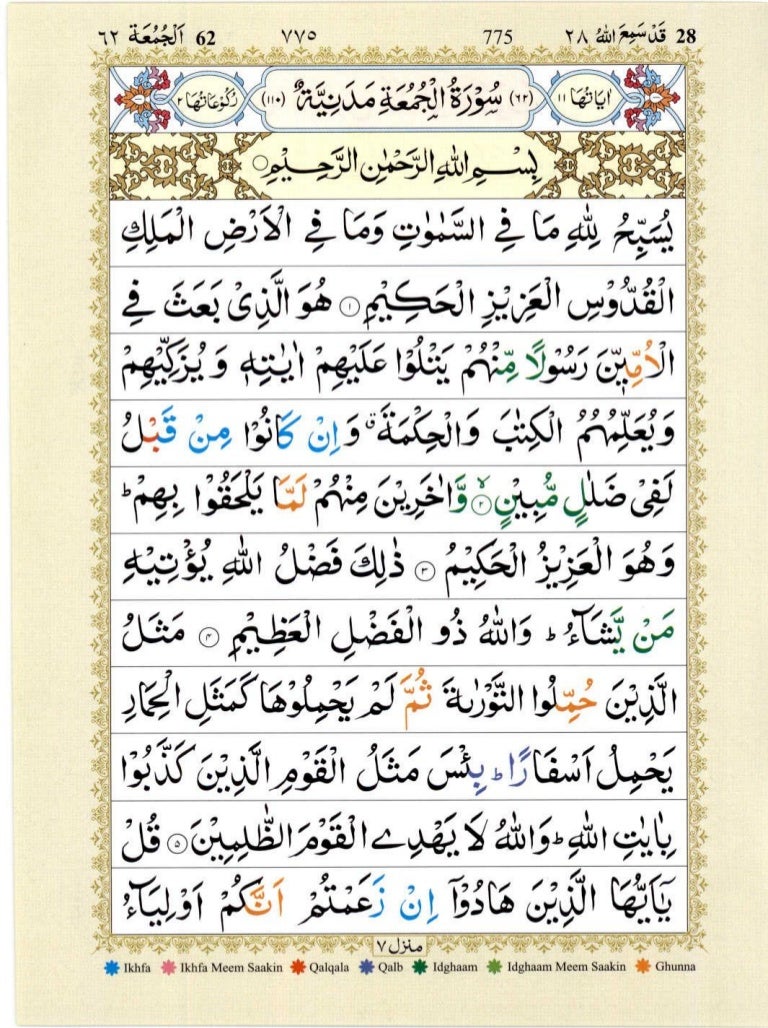 28 قَدْ سَمِعَ اللّٰهُ ٢٨ 775 ٧٧٥ 62 اَلْجُمُعَة ٦٢
اٰيَاتُهَا ١١ (٦٢) سُوْرَةُ الْجُمُعَةِ مَدَنِيَّةٌ (١١٠) رُكُوْعَاتُهَا ٢
بِسْمِ اللّٰهِ الرَّحْمٰنِ الرَّحِيْمِ
يُسَبِّحُ لِلّٰهِ مَا فِي السَّمٰوٰتِ وَمَا فِي الْاَرْضِ الْمَلِكِ
الْقُدُّوْسِ الْعَزِيْزِ الْحَكِيْمِ ۝١ هُوَ الَّذِيْ بَعَثَ فِي
الْاُمِّيّٖنَ رَسُوْلًا مِّنْهُمْ يَتْلُوْا عَلَيْهِمْ اٰيٰتِهٖ وَيُزَكِّيْهِمْ
وَيُعَلِّمُهُمُ الْكِتٰبَ وَالْحِكْمَةَ ۗ وَاِنْ كَانُوْا مِنْ قَبْلُ
لَفِيْ ضَلٰلٍ مُّبِيْنٍ ۝٢ۙ وَّاٰخَرِيْنَ مِنْهُمْ لَمَّا يَلْحَقُوْا بِهِمْ ؕ
وَهُوَ الْعَزِيْزُ الْحَكِيْمُ ۝٣ ذٰلِكَ فَضْلُ اللّٰهِ يُؤْتِيْهِ
مَنْ يَّشَآءُ ؕ وَاللّٰهُ ذُو الْفَضْلِ الْعَظِيْمِ ۝٤ مَثَلُ
الَّذِيْنَ حُمِّلُوا التَّوْرٰىةَ ثُمَّ لَمْ يَحْمِلُوْهَا كَمَثَلِ الْحِمَارِ
يَحْمِلُ اَسْفَارًا ؕ بِئْسَ مَثَلُ الْقَوْمِ الَّذِيْنَ كَذَّبُوْا
بِاٰيٰتِ اللّٰهِ ؕ وَاللّٰهُ لَا يَهْدِي الْقَوْمَ الظّٰلِمِيْنَ ۝٥ قُلْ
يٰۤاَيُّهَا الَّذِيْنَ هَادُوْۤا اِنْ زَعَمْتُمْ اَنَّكُمْ اَوْلِيَآءُ
منزل ٧
Ikhfa Ikhfa Meem Saakin Qalqala Qalb Idghaam Idghaam Meem Saakin Ghunna